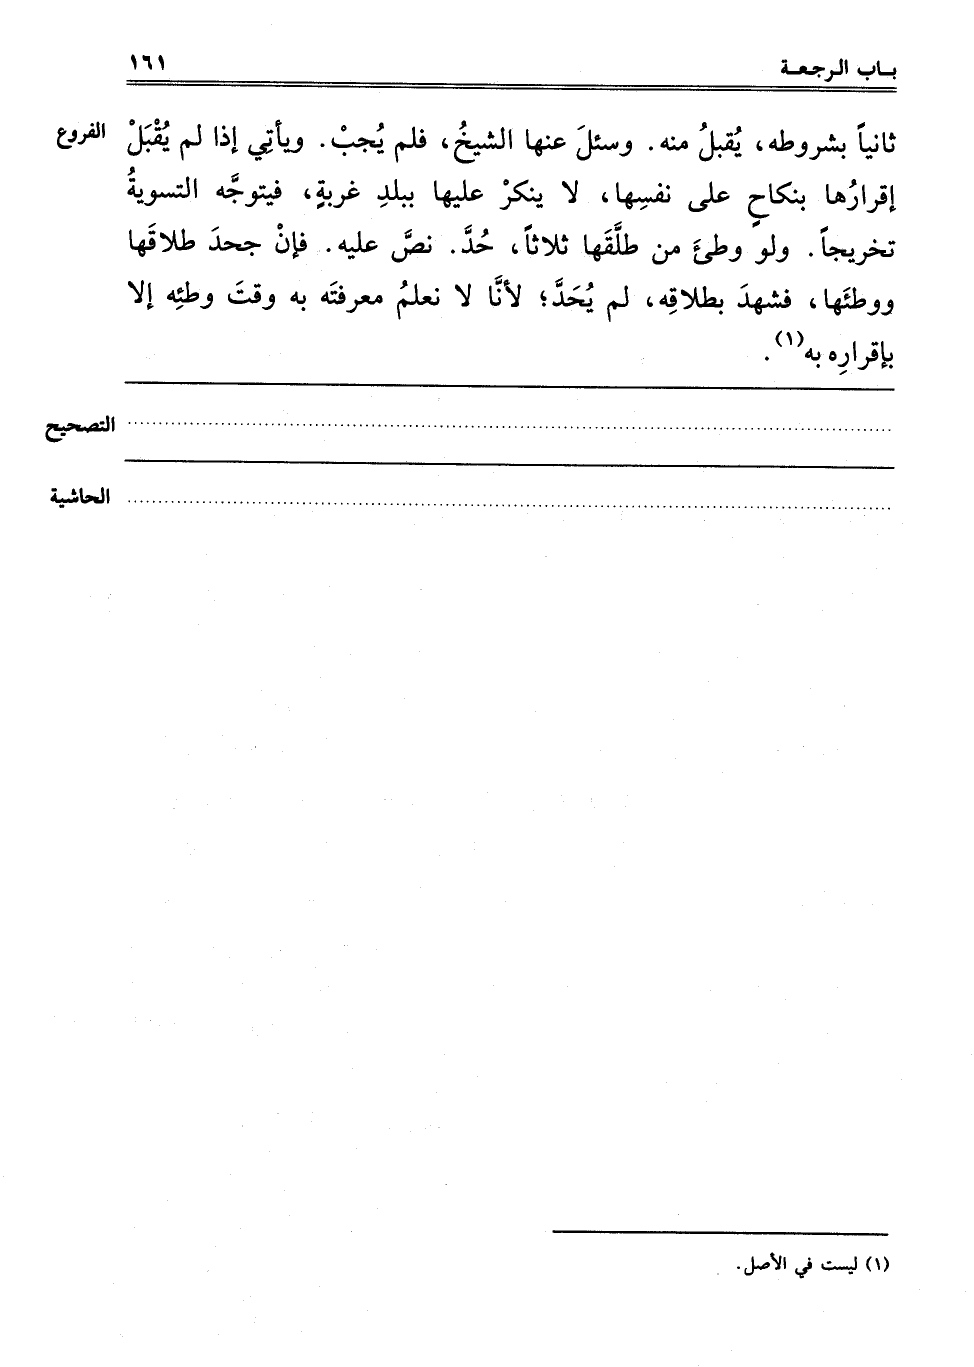 باب الرجعة ١٦١
ثانياً بشروطه، يُقبلُ منه. وسئلَ عنها الشيخُ، فلم يُجبْ. ويأتِي إذا لم يُقْبَلْ الفروع
إقرارُها بنكاحٍ على نفسِها، لا ينكرْ عليها ببلدِ غربةٍ، فيتوجَّه التسويةُ
تخريجاً. ولو وطئَ من طلَّقَها ثلاثاً، حُدَّ. نصَّ عليه. فإنْ جحدَ طلاقَها
ووطئَها، فشهدَ بطلاقِه، لم يُحَدَّ؛ لأنَّا لا نعلمُ معرفتَه به وقتَ وطئِه إلا
بإقرارِه به(١).
التصحيح
الحاشية
(١) ليست في الأصل.